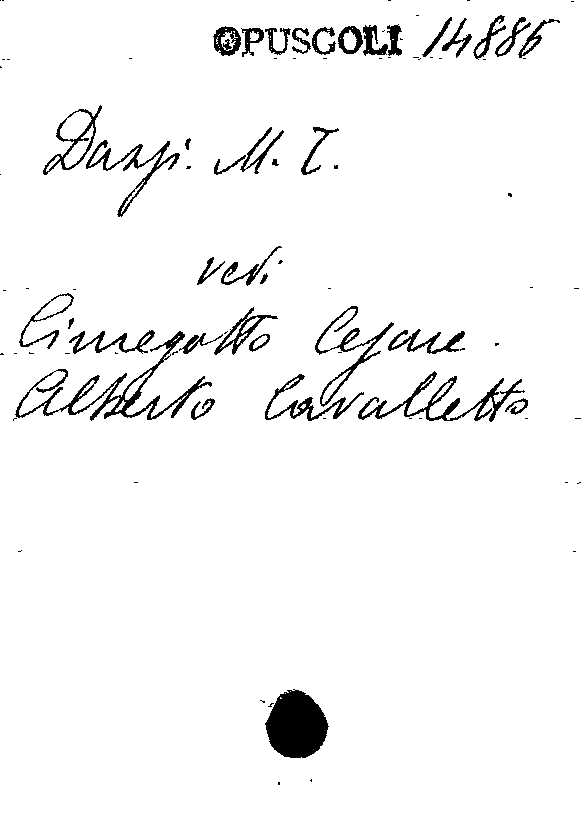 OPUSCOLI 14886
Dazzi. M. T.
vedi
Cimegotto Cesare.
Alberto Cavalletto